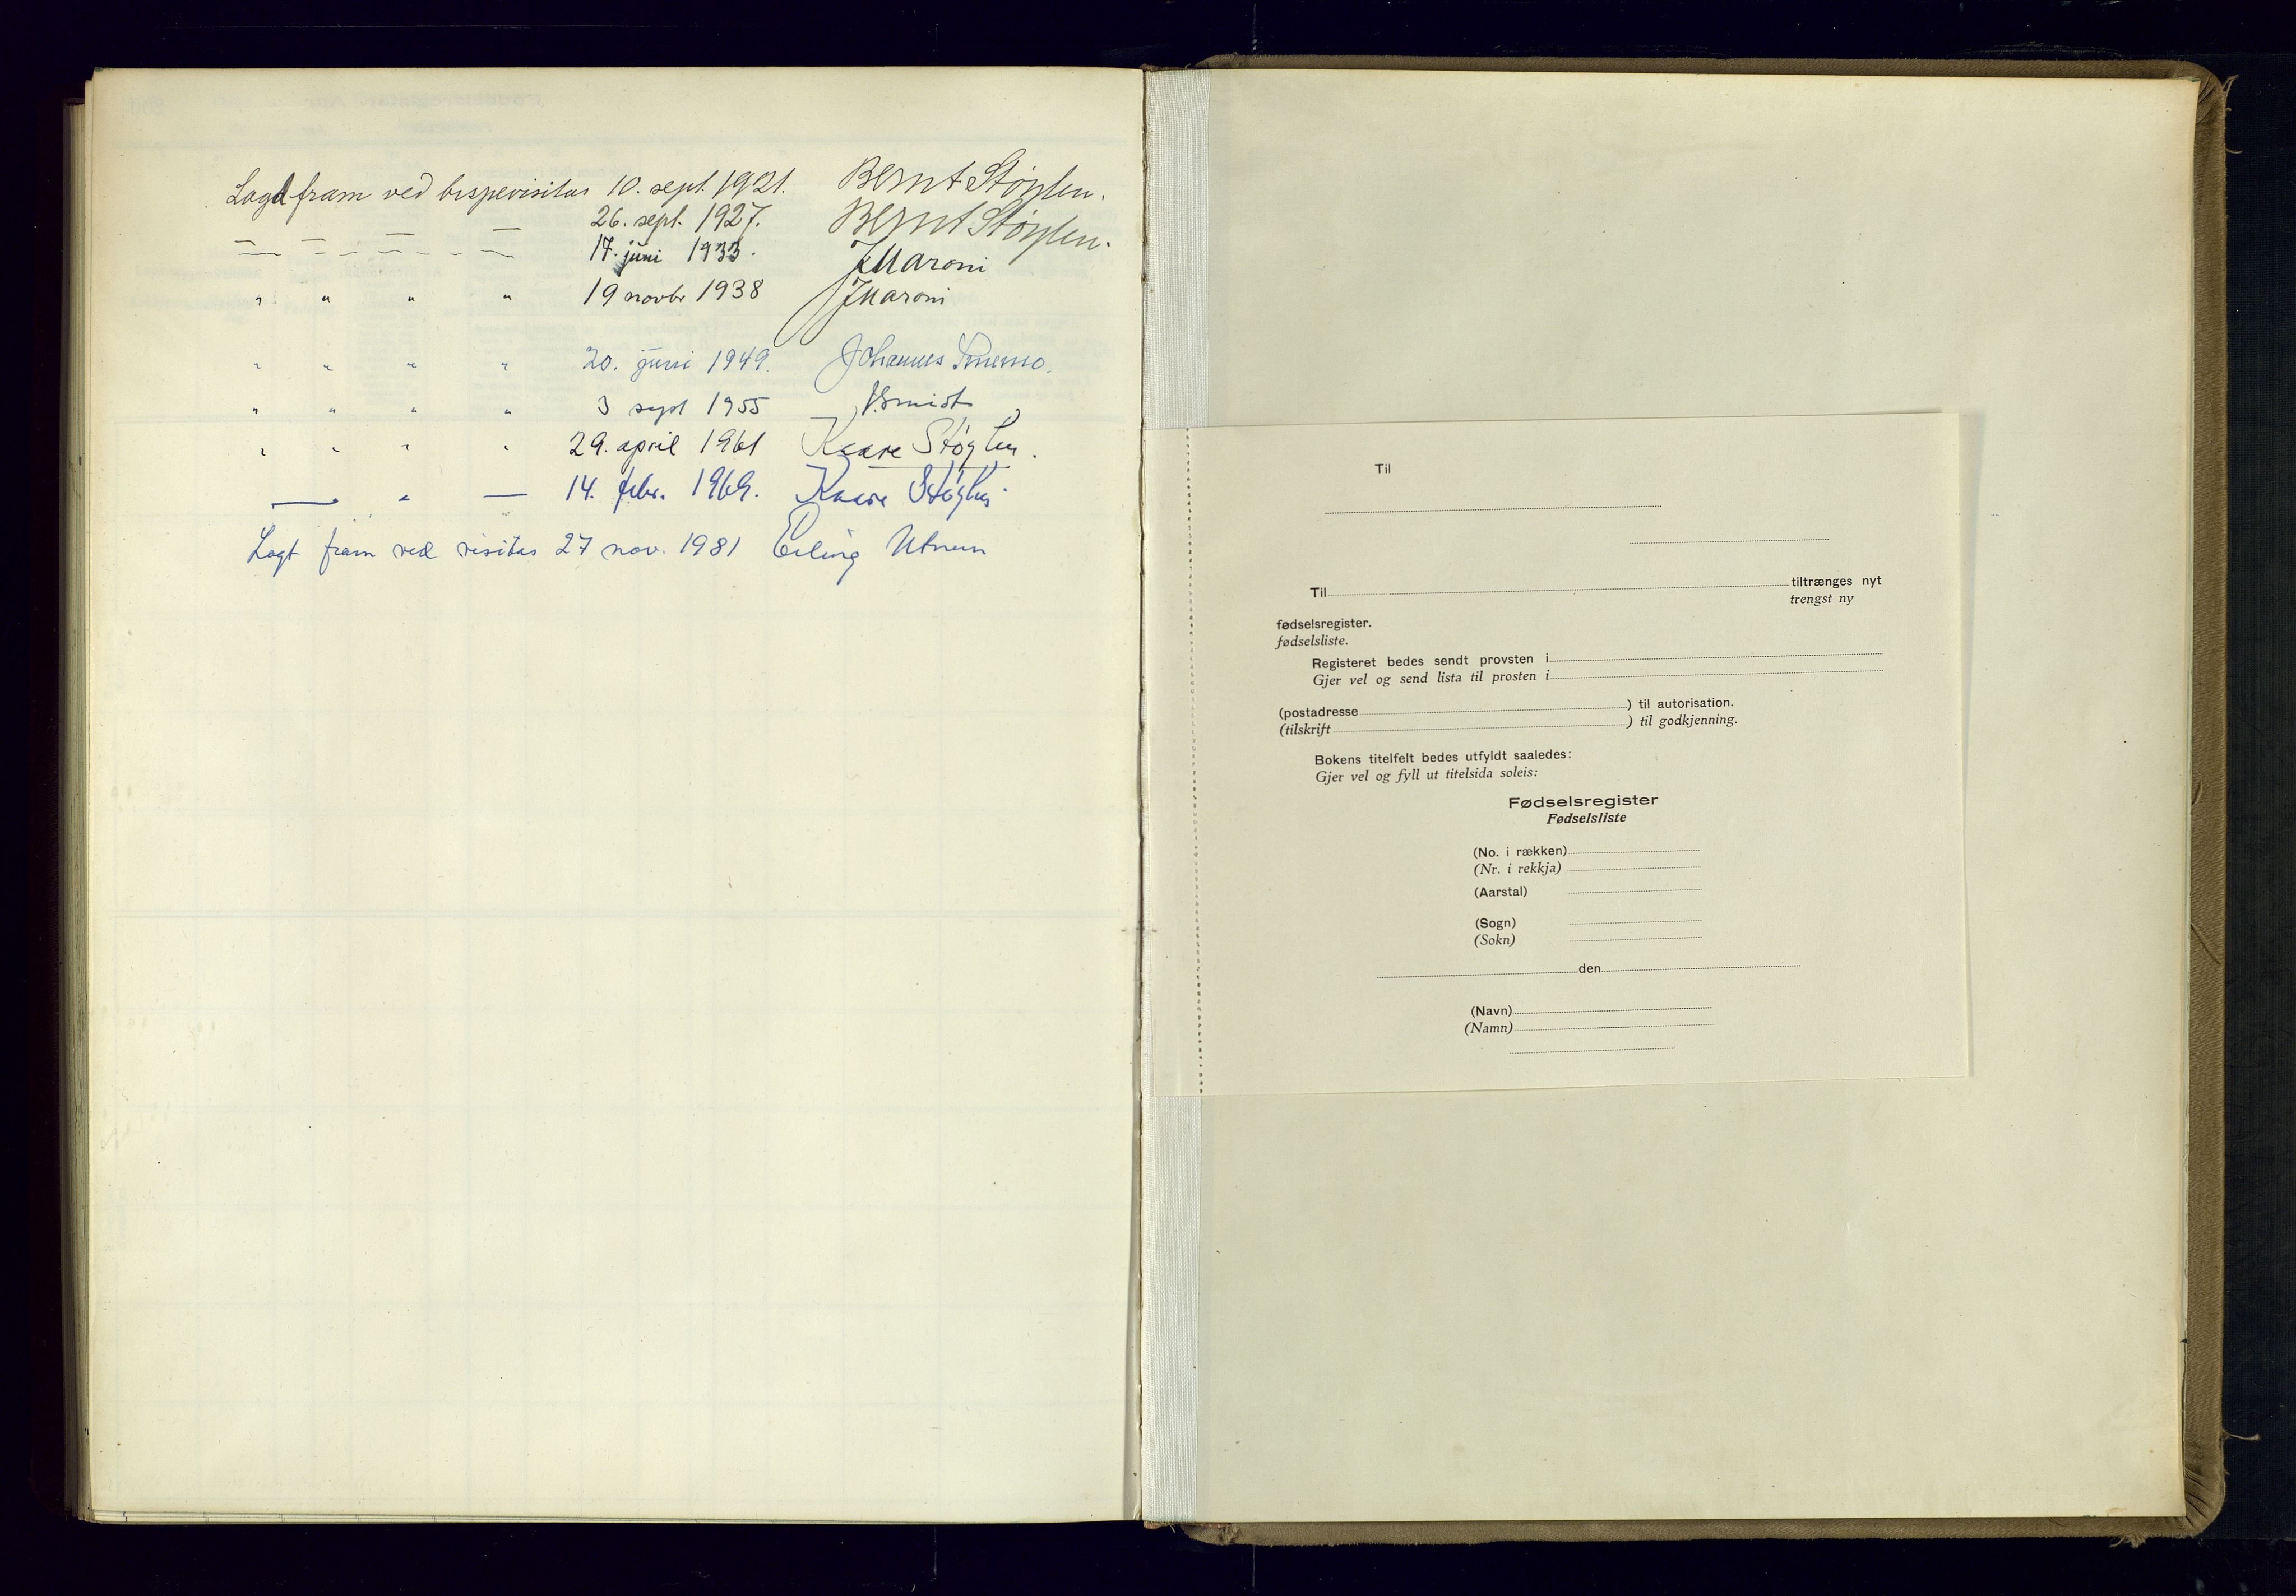 Lagd fram ved bispevisitas 10. sept. 1921. Bernt Støylen.
— — — — 26. sept. 1927. Bernt Støylen.
— — — — 17. juni 1933. J Maroni
" " " " 19 novbr 1938 J Maroni
" " " " 20. juni 1949. Johannes Smemo.
" " " " 3 sept 1955 J. Smidt
" " " " 29. april 1961 Kaare Støylen.
— " — 14. febr. 1969. Kaare Støylen
Lagt fram ved visitas 27 nov. 1981 Erling Utnem
Til
Til tiltrænges nyt
trengst ny
fødselsregister.
fødselsliste.
Registeret bedes sendt provsten i
Gjer vel og send lista til prosten i
(postadresse ) til autorisation.
(tilskrift ) til godkjenning.
Bokens titelfelt bedes utfyldt saaledes:
Gjer vel og fyll ut titelsida soleis:
Fødselsregister
Fødselsliste
(No. i rækken)
(Nr. i rekkja)
(Aarstal)
(Sogn)
(Sokn)
den
(Navn)
(Namn)